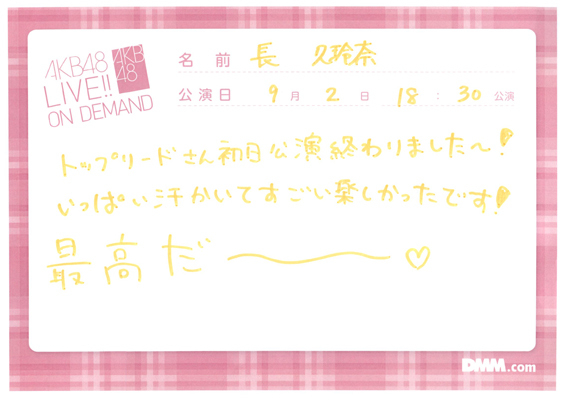 AKB48
LIVE!!
ON DEMAND
AKB
48
名前 長 久玲奈
公演日 9月2日 18:30 公演
トップリードさん初日公演終わりました〜!
いっぱい汗かいてすごい楽しかったです!
最高だ〜♡
DMM.com